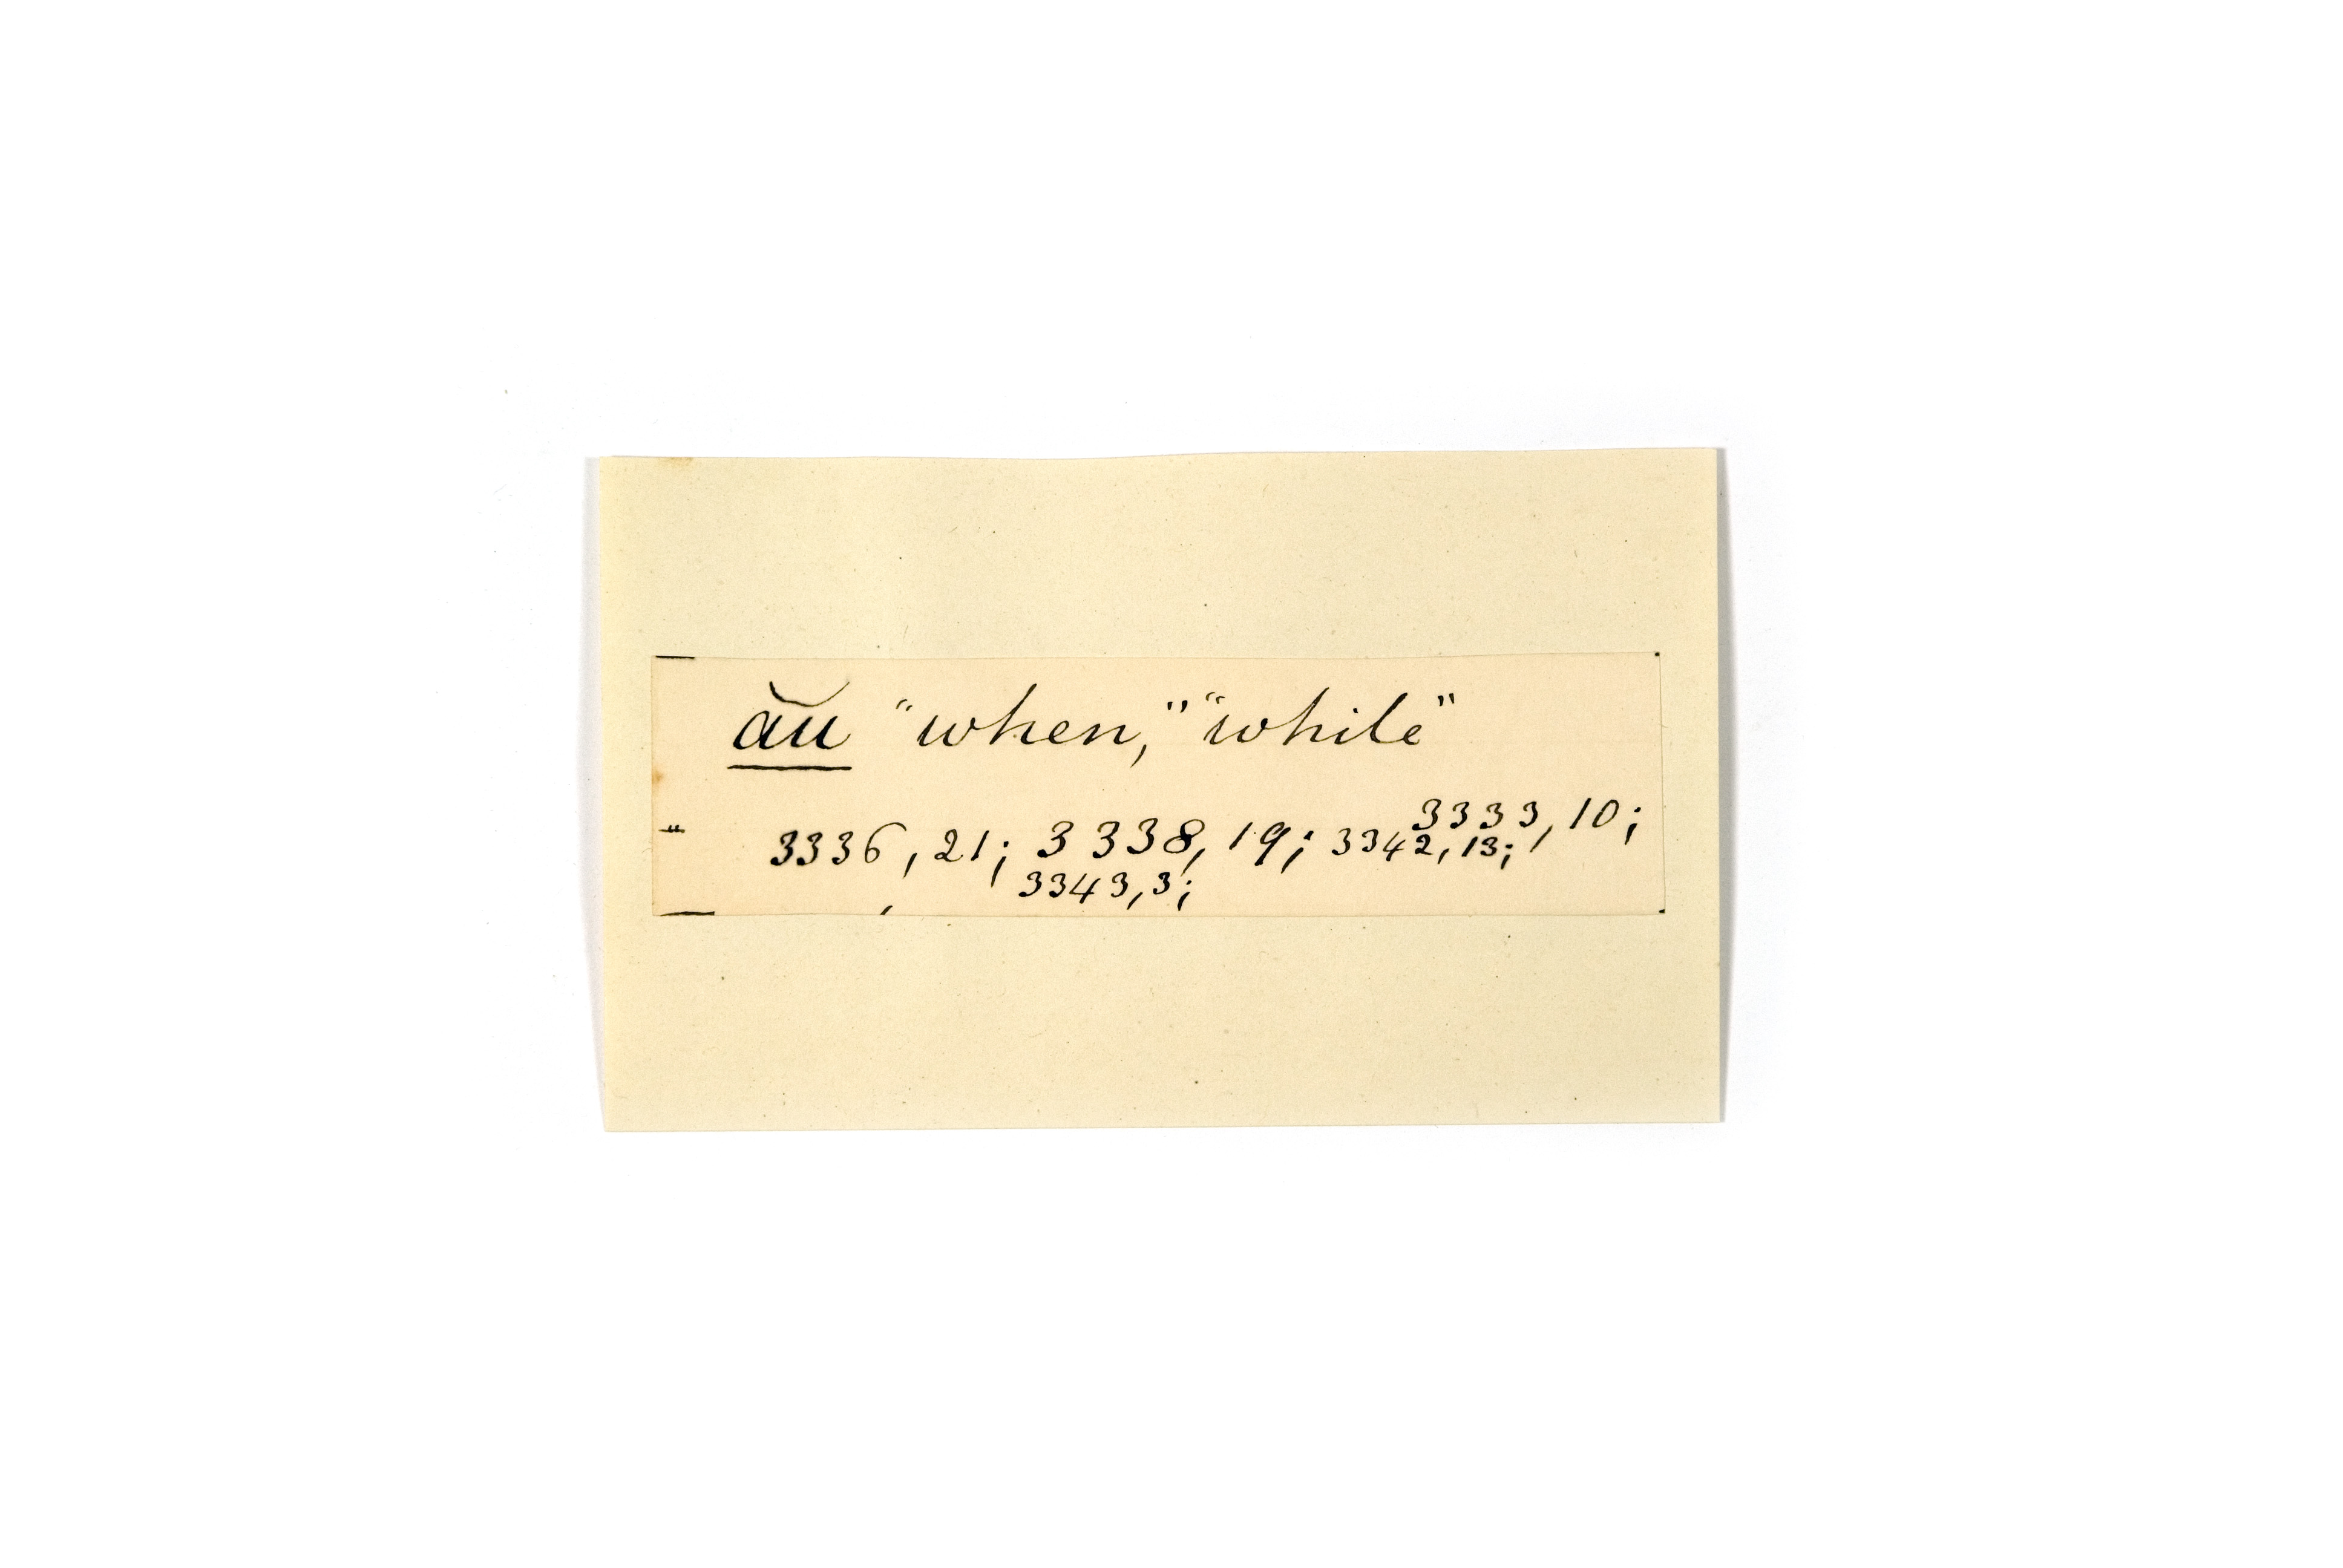 ău "when," "while"
3333, 10;
3336, 21; 3338, 19; 3342, 13;
3343, 3;